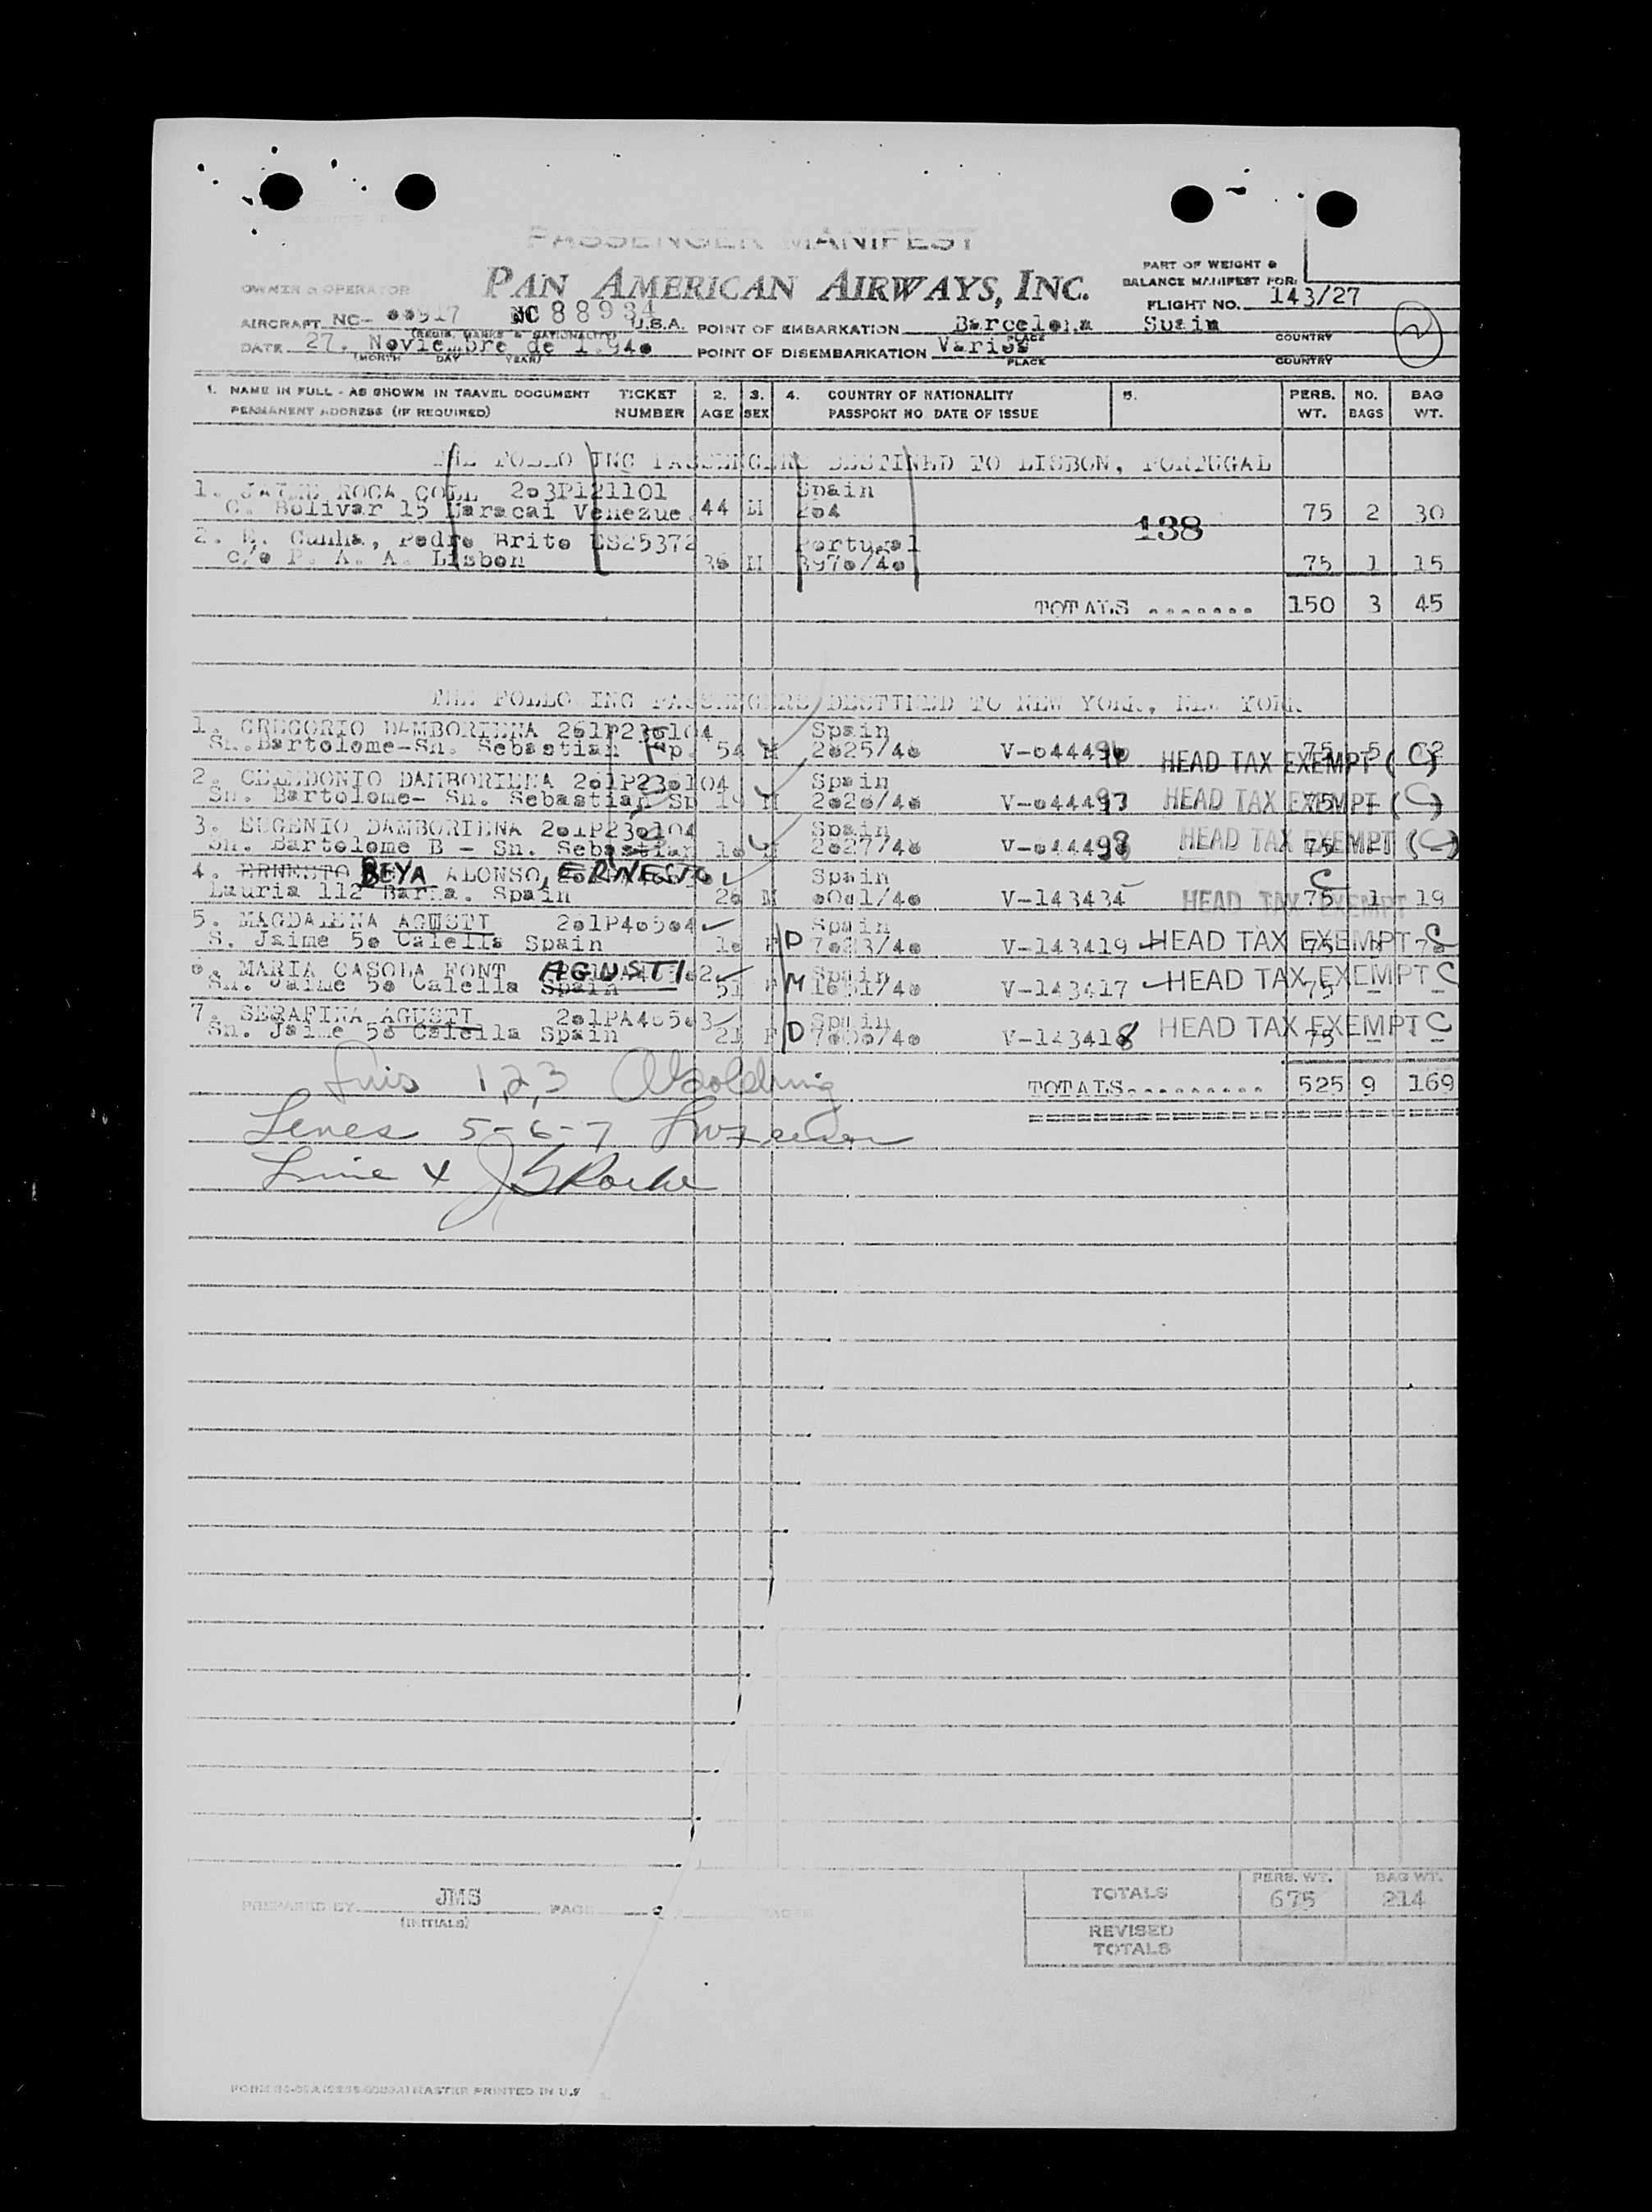 PASSENGER MANIFEST
PAN AMERICAN AIRWAYS, INC.
PART OF WEIGHT &
BALANCE MANIFEST FOR:
OWNER & OPERATOR
FLIGHT NO. 143/27
AIRCRAFT NC- NC 88934 U.S.A. POINT OF EMBARKATION Barcelona Spain
(REGIS. MARKS & NATIONALITY) PLACE COUNTRY
DATE 27. Noviembre de POINT OF DISEMBARKATION Varios
(MONTH DAY YEAR) PLACE COUNTRY
2
1. NAME IN FULL - AS SHOWN IN TRAVEL DOCUMENT TICKET 2. 3. 4. COUNTRY OF NATIONALITY 5. PERS. NO. BAG
PERMANENT ADDRESS (IF REQUIRED) NUMBER AGE SEX PASSPORT NO. DATE OF ISSUE WT. BAGS WT.
THE FOLLO ING PASSENGERS DESTINED TO LISBON, PORTUGAL
1. JAIME ROCA COLL 2o3P121101 Spain
C. Bolivar 15 Maracai Venezue 44 M 2o4 75 2 30
138
2. Cunha, Pedro Brito US25372 Portugal
c/o P. A. A. Lisbon M 397o/4o 75 1 15
TOTALS ....... 150 3 45
THE FOLLO ING PASSENGERS DESTINED TO NEW YORK, NEW YORK
1. GREGORIO DAMBORIENA 2o1P23o104 Spain
Sn. Bartolome-Sn. Sebastian Sp. 54 M 2o25/4o V-o44496 HEAD TAX EXEMPT (C) 75 5
2. CELEDONIO DAMBORIENA 2o1P23o104 Spain
Sn. Bartolome- Sn. Sebastian Sp 19 M 2o26/4o V-o44497 HEAD TAX EXEMPT (C) 75 -
3. EUGENIO DAMBORIENA 2o1P23o104 Spain
Sn. Bartolome B - Sn. Sebastian M 2o27/4o V-o44498 HEAD TAX EXEMPT (C) 75
4. ERNESTO BEYA ALONSO, ERNESTO Spain C
Lauria 112 Barna. Spain M oOo1/4o V-143434 HEAD TAX EXEMPT 75 1 19
5. MAGDALENA AGUSTI 2o1P4o5o4 Spain
S. Jaime 5o Calella Spain F D 7o23/4o V-143419 HEAD TAX EXEMPT C 75
6. MARIA CASOLA FONT AGUSTI Spain
Sn. Jaime 5o Calella Spain 51 F M V-143417 HEAD TAX EXEMPT C 75 - -
7. SERAFINA AGUSTI 2o1PA4o5o3 Spain
Sn. Jaime 5o Calella Spain 21 F D V-143418 HEAD TAX EXEMPT C 75 - -
1,2,3
TOTALS.......... 525 9 169
Lines 5-6-7
Line 4
PREPARED BY JMS PAGE
(INITIALS)
PERS. WT. BAG WT.
TOTALS 675 214
REVISED
TOTALS
MASTER PRINTED IN U.S